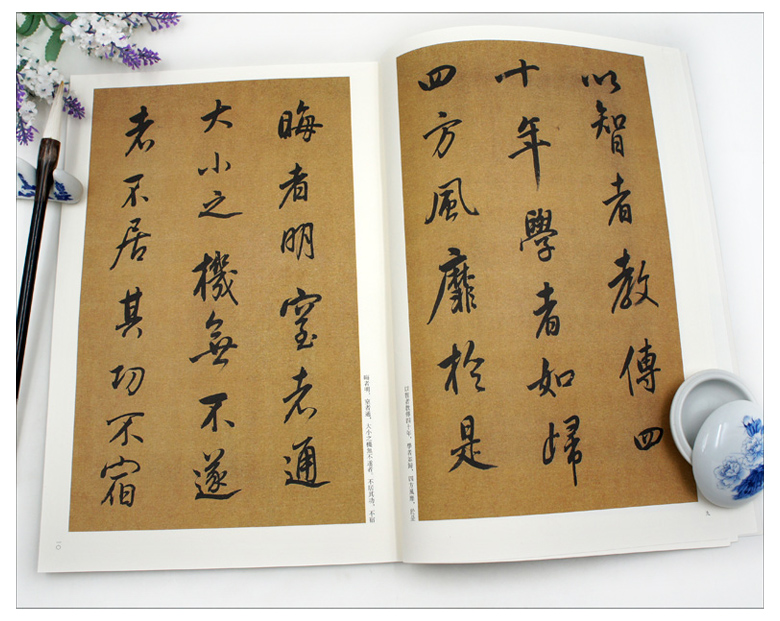 以智者教傳四
十年學者如歸
四方風靡於是
以智者教傳四十年，學者如歸，四方風靡，於是
九
晦者明窒者通
大小之機無不遂
者不居其功不宿
晦者明，窒者通，大小之機無不遂者，不居其功，不宿
一〇